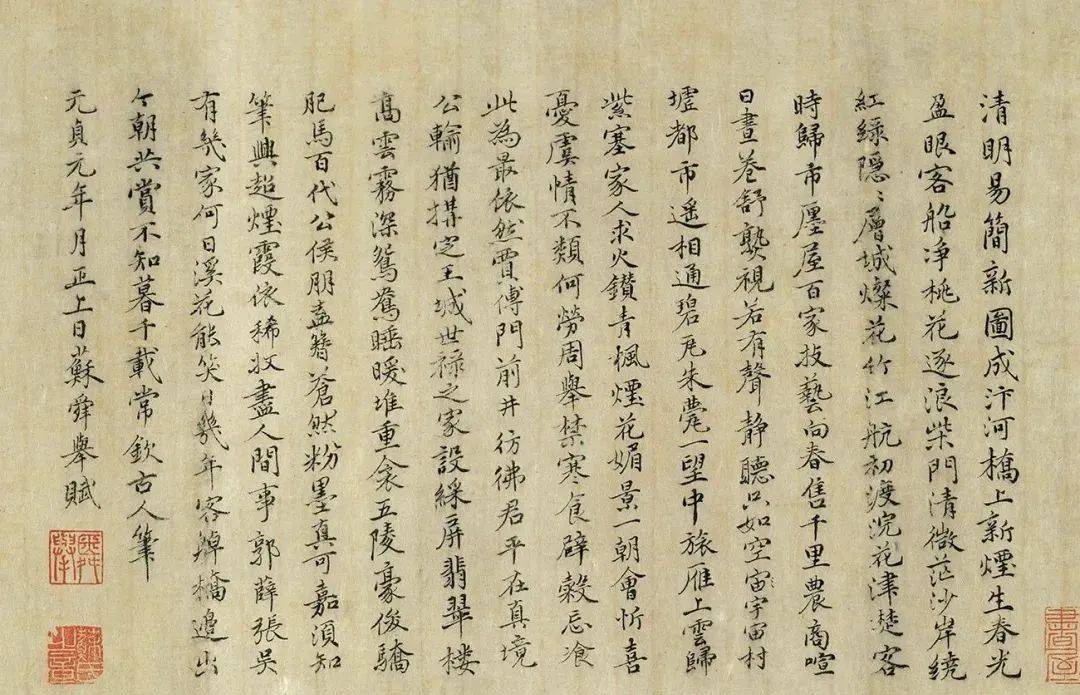 清明易簡新圖成汴河橋上新煙生春光
盈眼客船净桃花逐浪柴門清微茫沙岸繞
紅緑隱〻層城燦花竹江航初渡浣花津楚客
時歸市廛屋百家技藝向春售千里農商喧
日晝卷舒熟視若有聲静聽只如空宙宇宙村
墟都市遥相通碧瓦朱甍一望中旅雁上雲歸
紫塞家人求火鑽青楓煙花媚景一朝會忻喜
憂虞情不類何勞周舉禁寒食辟穀忘飡
此為最依然賈傅門前井彷彿君平在真境
公輸猶搆定王城世禄之家設綵屏翡翠楼
高雲霧深鴛鴦睡暖堆重衾五陵豪俊驕
肥馬百代公侯朋盍簪蒼然粉墨真可嘉須知
筆興超煙霞依稀妝盡人間事郭薛張吳
有幾家何日溪花能笑日幾年客橋邊出
今朝共賞不知暮千載常欽古人筆
元貞元年月正上日蘇舜舉賦
舜舉